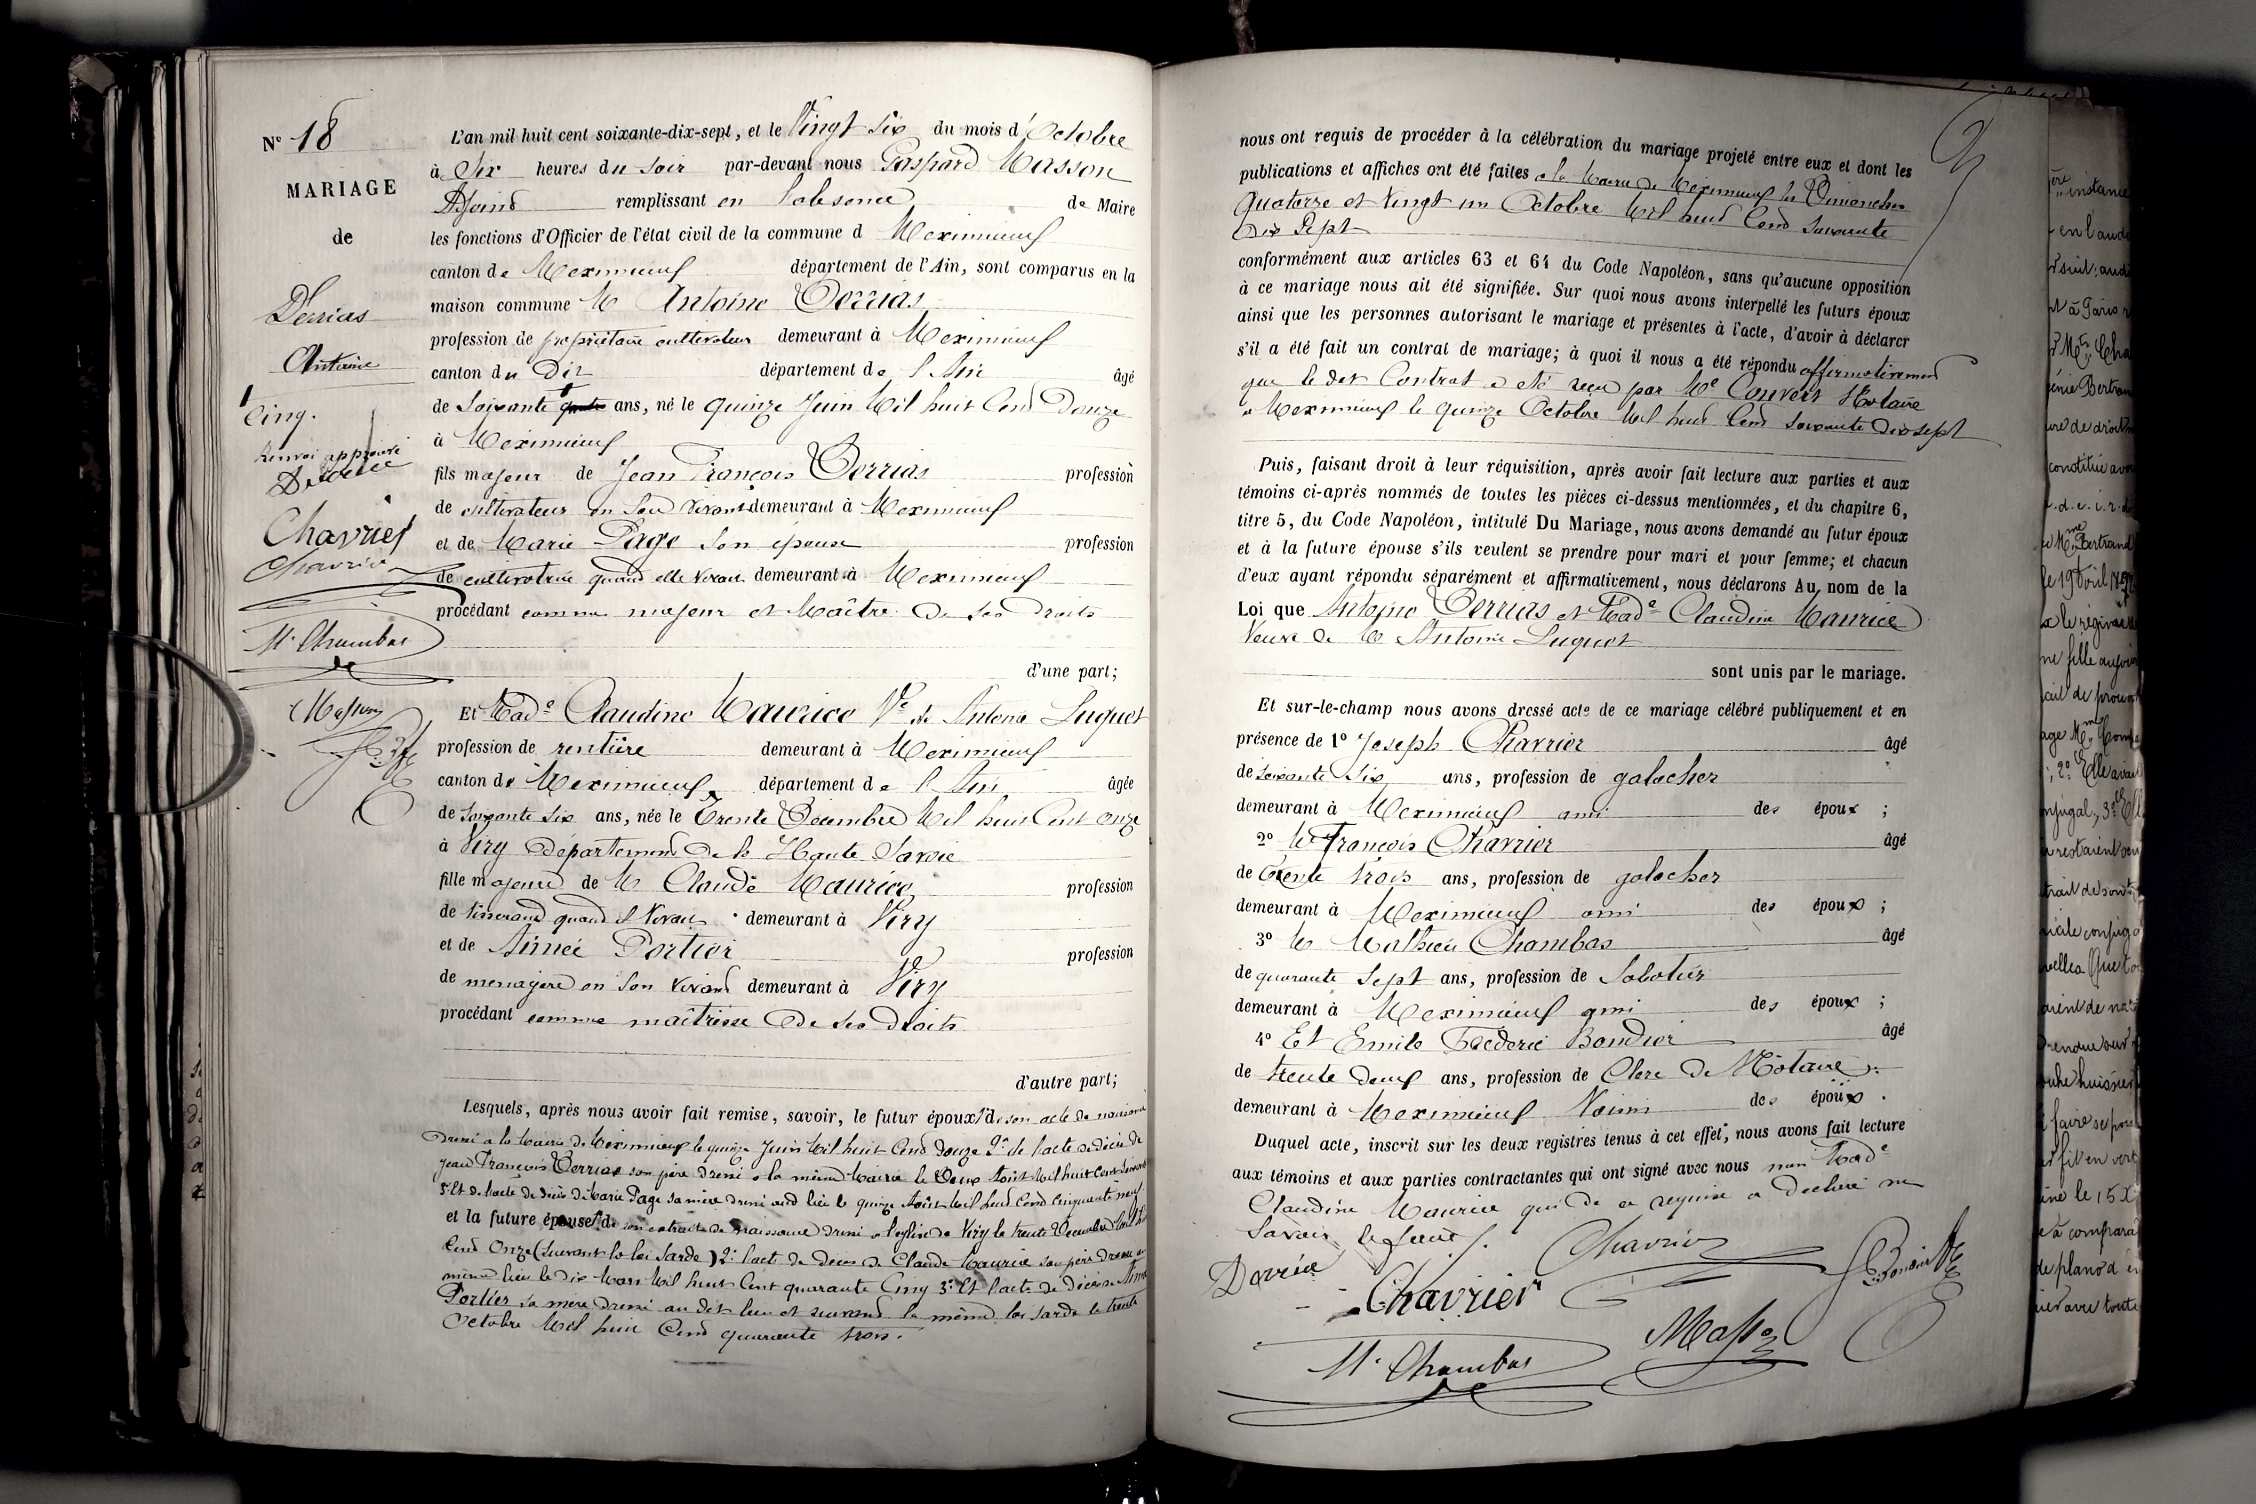 N° 18
MARIAGE
de
Derrias
Antoine
cinq.
Renvoi approuvé
Chavrier
Chavrier
M. Chambas
Masson
L'an mil huit cent soixante-dix-sept, et le Vingt six du mois d'Octobre
à Six heures du soir par-devant nous Gaspard Masson
Adjoint remplissant en l'absence de Maire
les fonctions d'Officier de l'état civil de la commune d Meximieux
canton de Meximieux département de l'Ain, sont comparus en la
maison commune M Antoine Derrias
profession de propriétaire cultivateur demeurant à Meximieux
canton du dit département de l'Ain âgé
de soixante quatre ans, né le quinze Juin Mil huit Cent Douze
à Meximieux
fils majeur de Jean François Derrias profession
de cultivateur en son vivant demeurant à Meximieux
et de Marie Page son épouse profession
de cultivatrice quand elle vivait demeurant à Meximieux
procédant comme majeur et Maître de ses droits
d'une part;
Et Made Claudine Maurice Ve de Antoine Luquet
profession de rentière demeurant à Meximieux
canton de Meximieux département de l'Ain âgée
de soixante six ans, née le Trente Décembre Mil huit Cent onze
à Viry département de la Haute Savoie
fille majeure de M Claude Maurice profession
de tisserand quand il vivait demeurant à Viry
et de Aimée Portier profession
de menagère en son vivant demeurant à Viry
procédant comme maîtresse de ses droits
d'autre part;
Lesquels, après nous avoir fait remise, savoir, le futur époux 1° de son acte de naissance
dressé a la Mairie de Meximieux le quinze Juin Mil huit Cent douze 2° de l'acte de décès de
Jean François Derrias son père dressé a la même Mairie le Deux Août Mil huit Cent
3° Et de l'acte de décès de Marie Page sa mère dressé aud lieu le quinze Août Mil huit Cent cinquante neuf
et la future épouse 1° de son extrait de naissance dressé a l'église de Viry le trente Décembre
Cent Onze (suivant la loi Sarde) 2° l'acte de décès de Claude Maurice son père dressé au
même lieu le dix Mars Mil huit Cent quarante Cinq 3° Et l'acte de décès de Aimée
Portier sa mère dressé au dit lieu et suivant la même loi sarde le trente
Octobre Mil huit Cent quarante trois.
nous ont requis de procéder à la célébration du mariage projeté entre eux et dont les
publications et affiches ont été faites a la Mairie de Meximieux les Dimanches
Quatorze et Vingt un Octobre Mil huit Cent Soixante
Dix Sept
conformément aux articles 63 et 64 du Code Napoléon, sans qu'aucune opposition
à ce mariage nous ait été signifiée. Sur quoi nous avons interpellé les futurs époux
ainsi que les personnes autorisant le mariage et présentes à l'acte, d'avoir à déclarer
s'il a été fait un contrat de mariage; à quoi il nous a été répondu affirmativement
que le dit Contrat a été reçu par Me Convert Notaire
a Meximieux le quinze Octobre Mil huit Cent Soixante Dix sept
Puis, faisant droit à leur réquisition, après avoir fait lecture aux parties et aux
témoins ci-après nommés de toutes les pièces ci-dessus mentionnées, et du chapitre 6,
titre 5, du Code Napoléon, intitulé Du Mariage, nous avons demandé au futur époux
et à la future épouse s'ils veulent se prendre pour mari et pour femme; et chacun
d'eux ayant répondu séparément et affirmativement, nous déclarons Au nom de la
Loi que Antoine Derrias et Made Claudine Maurice
Veuve de M Antoine Luquet
sont unis par le mariage.
Et sur-le-champ nous avons dressé acte de ce mariage célébré publiquement et en
présence de 1° Joseph Chavrier âgé
de soixante six ans, profession de galocher
demeurant à Meximieux ami des époux ;
2° M François Chavrier âgé
de Trente trois ans, profession de galocher
demeurant à Meximieux ami des époux ;
3° M Mathieu Chambas âgé
de quarante sept ans, profession de Sabotier
demeurant à Meximieux ami des époux ;
4° Et Emile Fréderic Bondier âgé
de trente deux ans, profession de Clerc de Notaire
demeurant à Meximieux Voisin des époux .
Duquel acte, inscrit sur les deux registres tenus à cet effet, nous avons fait lecture
aux témoins et aux parties contractantes qui ont signé avec nous non Made
Claudine Maurice qui de ce requise a déclaré ne
savoir le faire
Chavrier
Chavrier
Bondier
Masson
M. Chambas